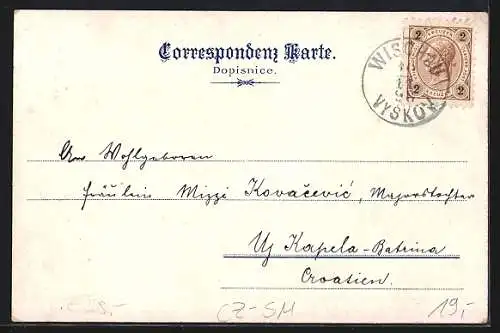 Correspondenz Karte.
Dopisnice.
2 2
WISCHAU
2 2
VYŠKOV
An Wohlgeboren
Fräulein Mizzi Kovačević, Majorstochter
Uj Kapela-Batrina
Croatien.
CZ-SM
19,-